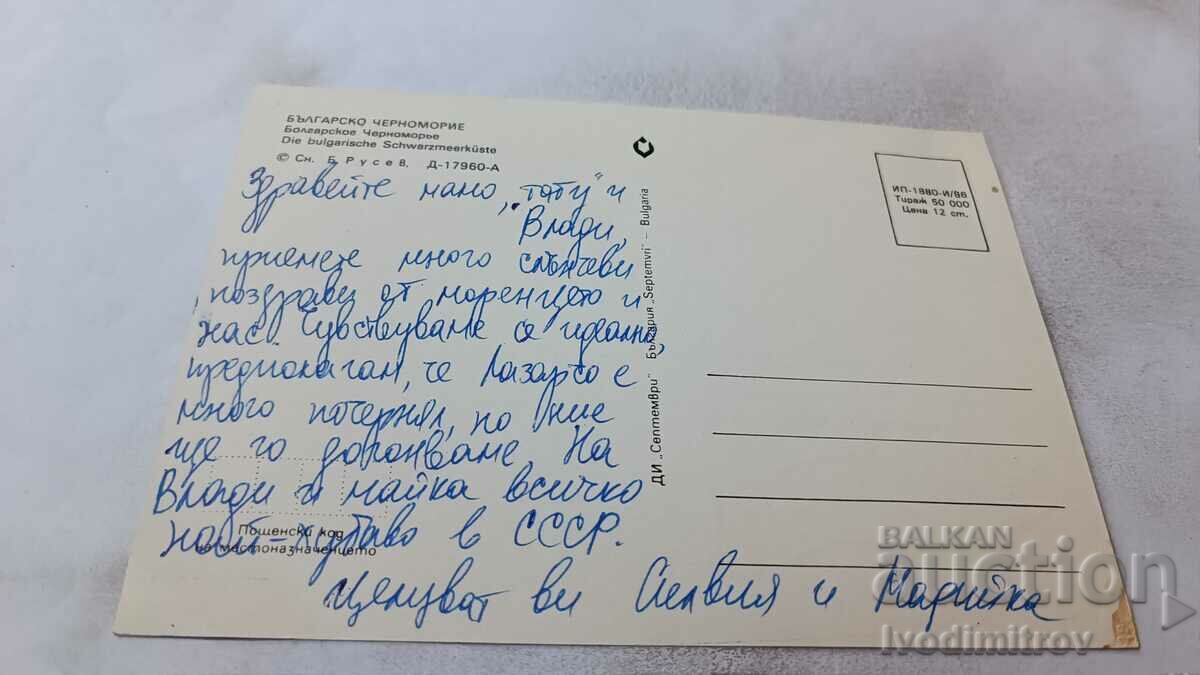 БЪЛГАРСКО ЧЕРНОМОРИЕ
Болгарское Черноморье
Die bulgarische Schwarzmeerküste
© Сн. Б. Русев, Д-17960-А
Здравейте мамо, „тати“ и
Влади,
приемете много слънчеви
поздрави от моренцето и
нас. Чувствуваме се идеално,
предполагам, че Лазарчо е
много почернял, но ние
ще го догонваме. На
Влади и майка всичко
най-хубаво в СССР.
Целуват ви Силвия и
Пощенски код
на местоназначението
ДИ „Септември“ България „Septemvri“ – Bulgaria
ИП-1880-И/86
Тираж 50 000
Цена 12 ст.
BALKAN
auction
Ivodimitrov